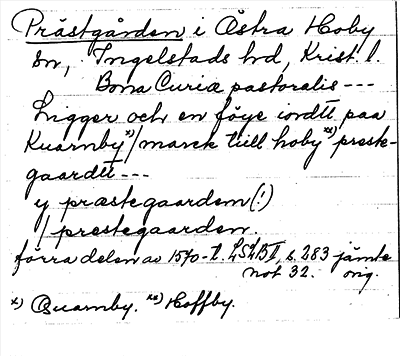 Prästgården i Östra Hoby
sn, Ingelstads hd, Krist. l.
Bona Curiæ pastoralis ---
Ligger och en föye iordtt paa
Kuarnby x)/marck tiill hoby xx) preste-
gaardtt ---
y præstegaardem (!)
/ prestegaarden.
förra delen av 1570-t. LSLB II, s. 283 jämte
not 32. orig.
x) Quarnby. xx) Hoffby.